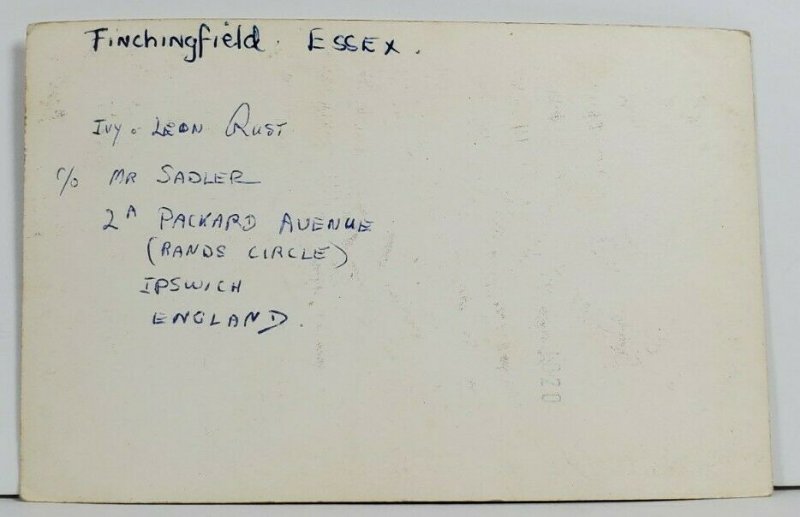 Finchingfield. ESSEX.
IVY & LEON RUST
c/o MR SADLER
2A PACKARD AVENUE
(RANDS CIRCLE)
IPSWICH
ENGLAND.